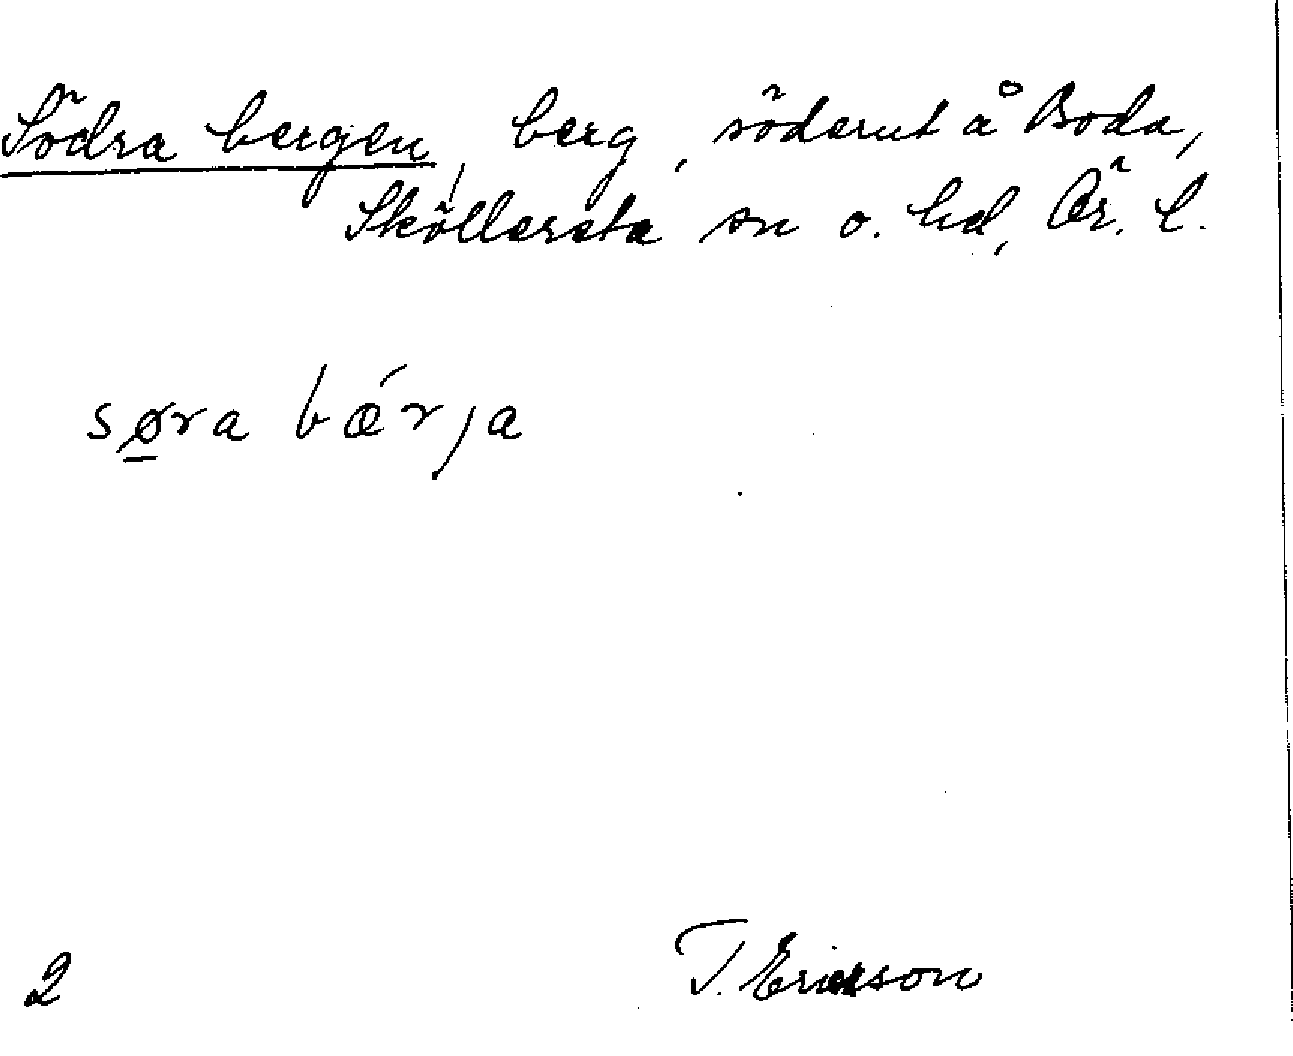 Södra bergen, berg, söderut å Boda,
Sköllersta sn o. hd, Ör. l.
sø̱ra bǽrja
2 T. Ericsson